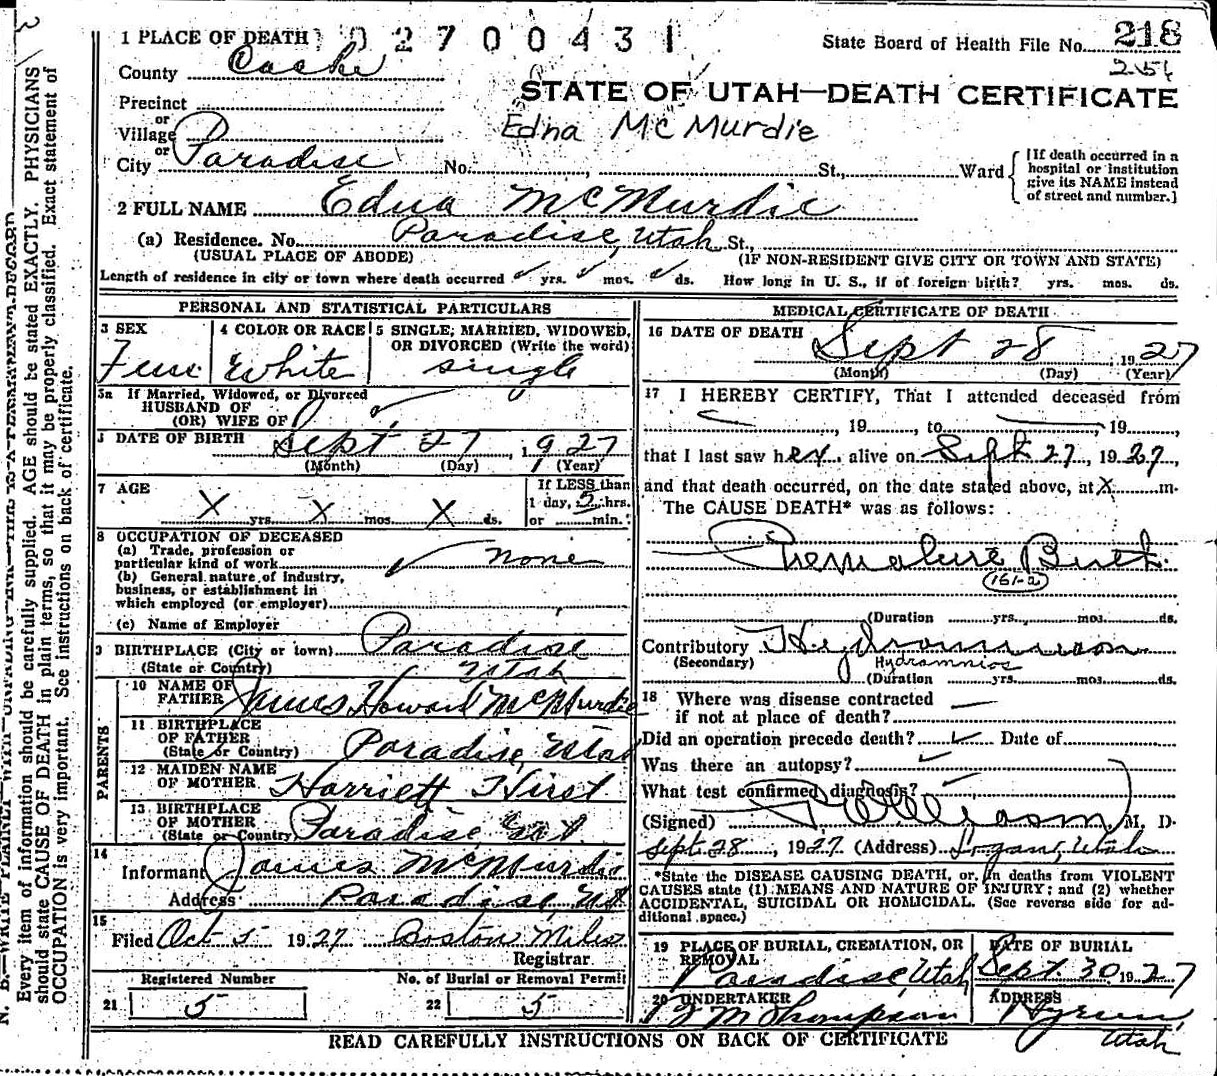 1 PLACE OF DEATH
02700431
State Board of Health File No. 218
County Cache
STATE OF UTAH—DEATH CERTIFICATE
Precinct
or
Village
Edna McMurdie
or
City Paradise No. St., Ward
[If death occurred in a
hospital or institution
give its NAME instead
of street and number.]
2 FULL NAME Edna McMurdie
(a) Residence. No. Paradise, Utah St.,
(USUAL PLACE OF ABODE) (IF NON-RESIDENT GIVE CITY OR TOWN AND STATE)
Length of residence in city or town where death occurred yrs. mos. ds. How long in U. S., if of foreign birth? yrs. mos. ds.
PERSONAL AND STATISTICAL PARTICULARS
3 SEX
Fem
4 COLOR OR RACE
White
5 SINGLE, MARRIED, WIDOWED,
OR DIVORCED (Write the word)
single
5a If Married, Widowed, or Divorced
HUSBAND OF
(OR) WIFE OF
DATE OF BIRTH Sept 27, 1927
(Month) (Day) (Year)
7 AGE
X yrs. X mos. X ds.
If LESS than
1 day, 5 hrs.
or min.
8 OCCUPATION OF DECEASED
(a) Trade, profession or
particular kind of work none
(b) General nature of Industry,
business, or establishment in
which employed (or employer)
(c) Name of Employer
9 BIRTHPLACE (City or town) Paradise
(State or Country) Utah
PARENTS
10 NAME OF
FATHER James Howard McMurdie
11 BIRTHPLACE
OF FATHER
(State or Country) Paradise, Utah
12 MAIDEN NAME
OF MOTHER Harriett Hirst
13 BIRTHPLACE
OF MOTHER
(State or Country) Paradise, Ut
14
Informant James McMurdie
Address Paradise, Ut
15
Filed Oct 5 1927 Boston Miles
Registrar
Registered Number No. of Burial or Removal Permit
21 5 22 5
MEDICAL CERTIFICATE OF DEATH
16 DATE OF DEATH Sept 28 1927
(Month) (Day) (Year)
17 I HEREBY CERTIFY, That I attended deceased from
, 19 , to , 19 ,
that I last saw her alive on Sept 27, 1927,
and that death occurred, on the date stated above, at X m.
The CAUSE DEATH* was as follows:
Premature Birth
161-2
(Duration yrs. mos. ds.
Contributory
(Secondary) Hydramnios
(Duration yrs. mos. ds.
18 Where was disease contracted
if not at place of death?
Did an operation precede death? Date of
Was there an autopsy?
What test confirmed diagnosis?
(Signed) M. D.
Sept. 28, 1927 (Address) Logan, Utah
*State the DISEASE CAUSING DEATH, or, in deaths from VIOLENT
CAUSES state (1) MEANS AND NATURE OF INJURY; and (2) whether
ACCIDENTAL, SUICIDAL OR HOMICIDAL. (See reverse side for ad-
ditional space.)
19 PLACE OF BURIAL, CREMATION, OR
REMOVAL
Paradise, Utah
DATE OF BURIAL
Sept. 30, 1927
20 UNDERTAKER
Thompson
ADDRESS
Hyrum,
Utah
READ CAREFULLY INSTRUCTIONS ON BACK OF CERTIFICATE
Every item of information should be carefully supplied. AGE should be stated EXACTLY. PHYSICIANS
should state CAUSE OF DEATH in plain terms, so that it may be properly classified. Exact statement of
OCCUPATION is very important. See instructions on back of certificate.